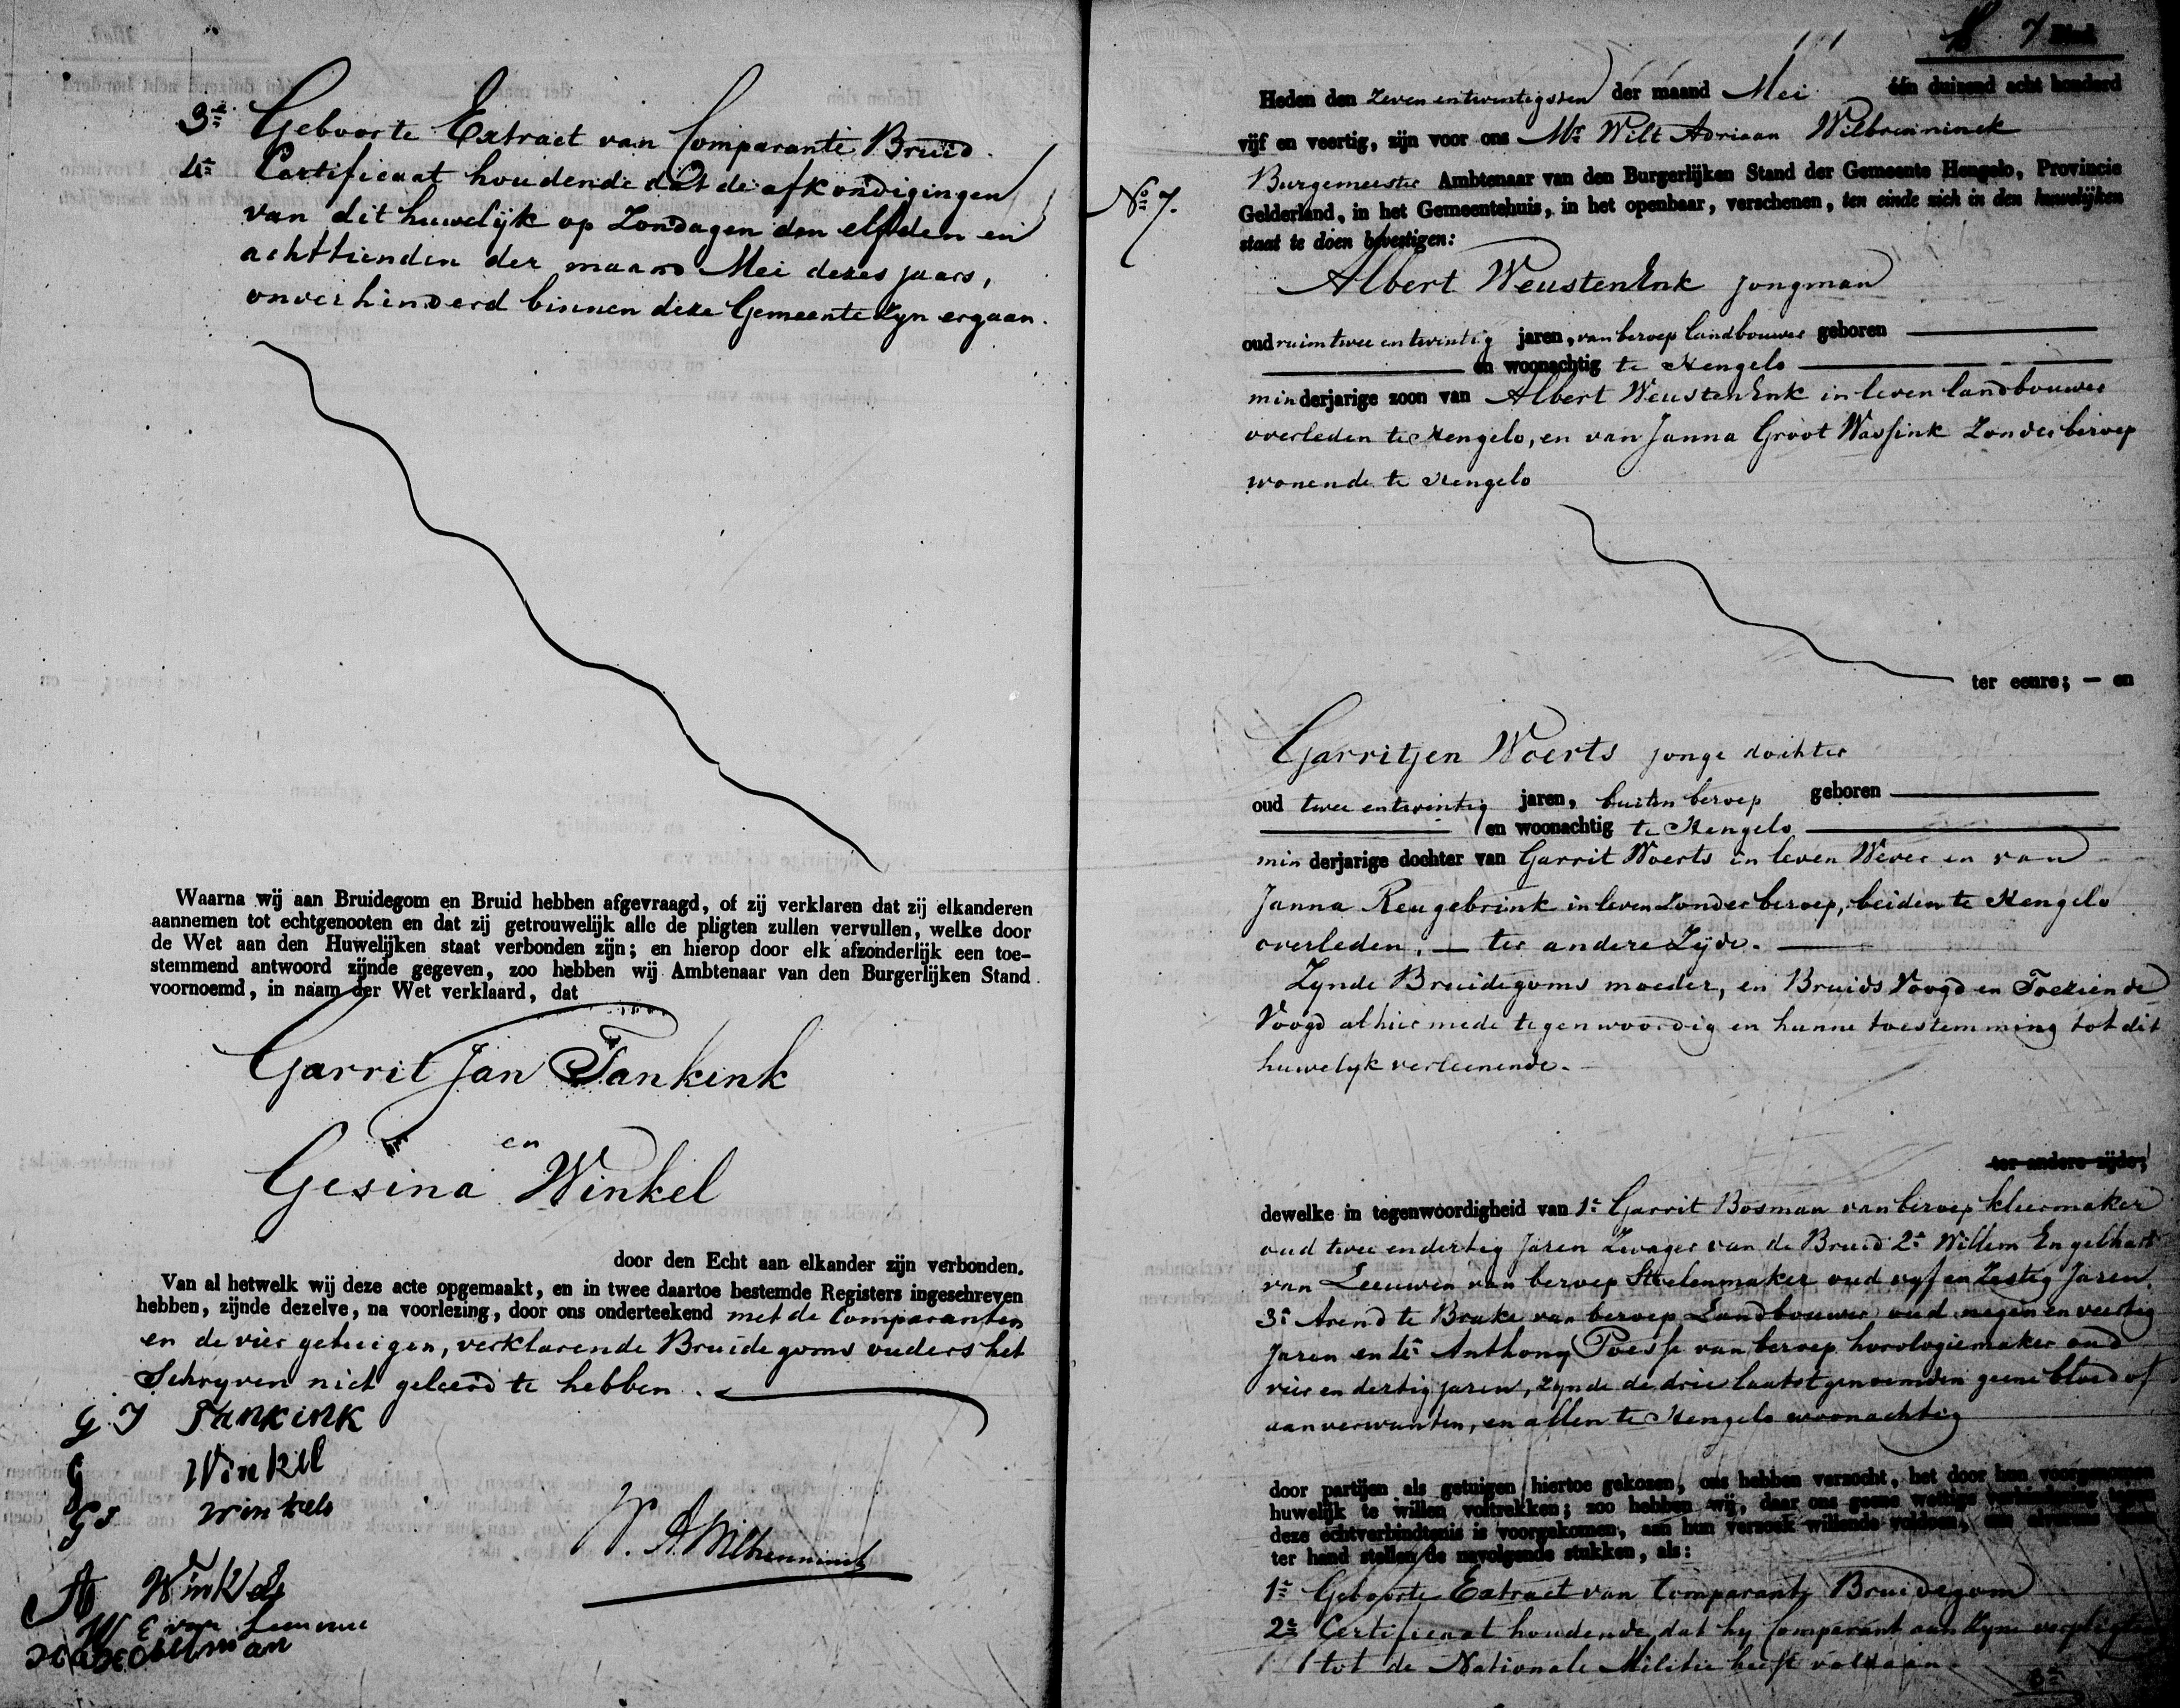 3e Geboorte Extract van Comparante Bruid.
4e Certificaat houdende dat de afkondigingen
van dit huwelijk op Zondagen den elfden en
achttienden der maand Mei dezes jaars,
onverhinderd binnen deze Gemeente zyn ergaan.
Waarna wij aan Bruidegom en Bruid hebben afgevraagd, of zij verklaren dat zij elkanderen
aannemen tot echtgenooten en dat zij getrouwelijk alle de pligten zullen vervullen, welke door
de Wet aan den Huwelijken staat verbonden zijn; en hierop door elk afzonderlijk een toe-
stemmend antwoord zijnde gegeven, zoo hebben wij Ambtenaar van den Burgerlijken Stand
voornoemd, in naam der Wet verklaard, dat
Garrit Jan Tankink
en
Gesina Winkel
door den Echt aan elkander zijn verbonden.
Van al hetwelk wij deze acte opgemaakt, en in twee daartoe bestemde Registers ingeschreven
hebben, zijnde dezelve, na voorlezing, door ons onderteekend met de Comparanten
en de vier getuigen, verklarende Bruidegoms ouders het
Schryven niet geleerd te hebben.
G J Tankink
G Winkel
GJ Winkels
W. A. Wilbrenninck
A Winkels
W E van Leeuwen
7
Heden den zevenentwintigsten der maand Mei één duizend acht honderd
vijf en veertig, zijn voor ons Mr Wilt Adriaan Wilbrenninck
Burgemeester Ambtenaar van den Burgerlijken Stand der Gemeente Hengelo, Provincie
No 7.
Gelderland, in het Gemeentehuis, in het openbaar, verschenen, ten einde zich in den huwelijken
staat te doen bevestigen:
Albert WeustenEnk jongman
oud ruim twee en twintig jaren, van beroep landbouwer geboren
en woonachtig te Hengelo
minderjarige zoon van Albert WeustenEnk in leven landbouwer
overleden te Hengelo, en van Janna Groot Wassink zonder beroep
wonende te Hengelo
ter eenre; — en
Garritjen Woerts jonge dochter
oud twee entwintig jaren, buiten beroep geboren
en woonachtig te Hengelo
min derjarige dochter van Garrit Woerts in leven Wever en van
Janna Reugebrink in leven zonder beroep, beiden te Hengelo
overleden. — ter andere Zijde.
Zynde Bruidegoms moeder, en Bruids Voogd en Toeziende
Voogd alhier mede tegenwoordig en hunne toestemming tot dit
huwelyk verleenende.
ter andere zijde;
dewelke in tegenwoordigheid van 1e Garrit Bosman van beroep kleermaker
oud twee endertig Jaren Zwager van de Bruid 2e Willem Engelhart
van Leeuwen van beroep Stoelenmaker oud vyf en Zestig Jaren
3e Arend te Brake van beroep Landbouwer oud negen en veertig
Jaren en 4e Anthony Poesse van beroep horologiemaker oud
vier en dertig jaren, zynde de drie laatstgenoemden geene bloed of
aanverwanten, en allen te Hengelo woonachtig
door partijen als getuigen hiertoe gekozen, ons hebben verzocht, het door hun voorgenomen
huwelijk te willen voltrekken; zoo hebben wij, daar ons geene wettige verhindering tegen
deze echtverbindtenis is voorgekomen, aan hun verzoek willende voldoen,
ter hand stellen de navolgende stukken, als:
1e Geboorte Extract van Comparant Bruidegom
2e Certificaat houdende dat hy Comparant aan zyne verpligting
tot de Nationale Militie heeft voldaan.
3e